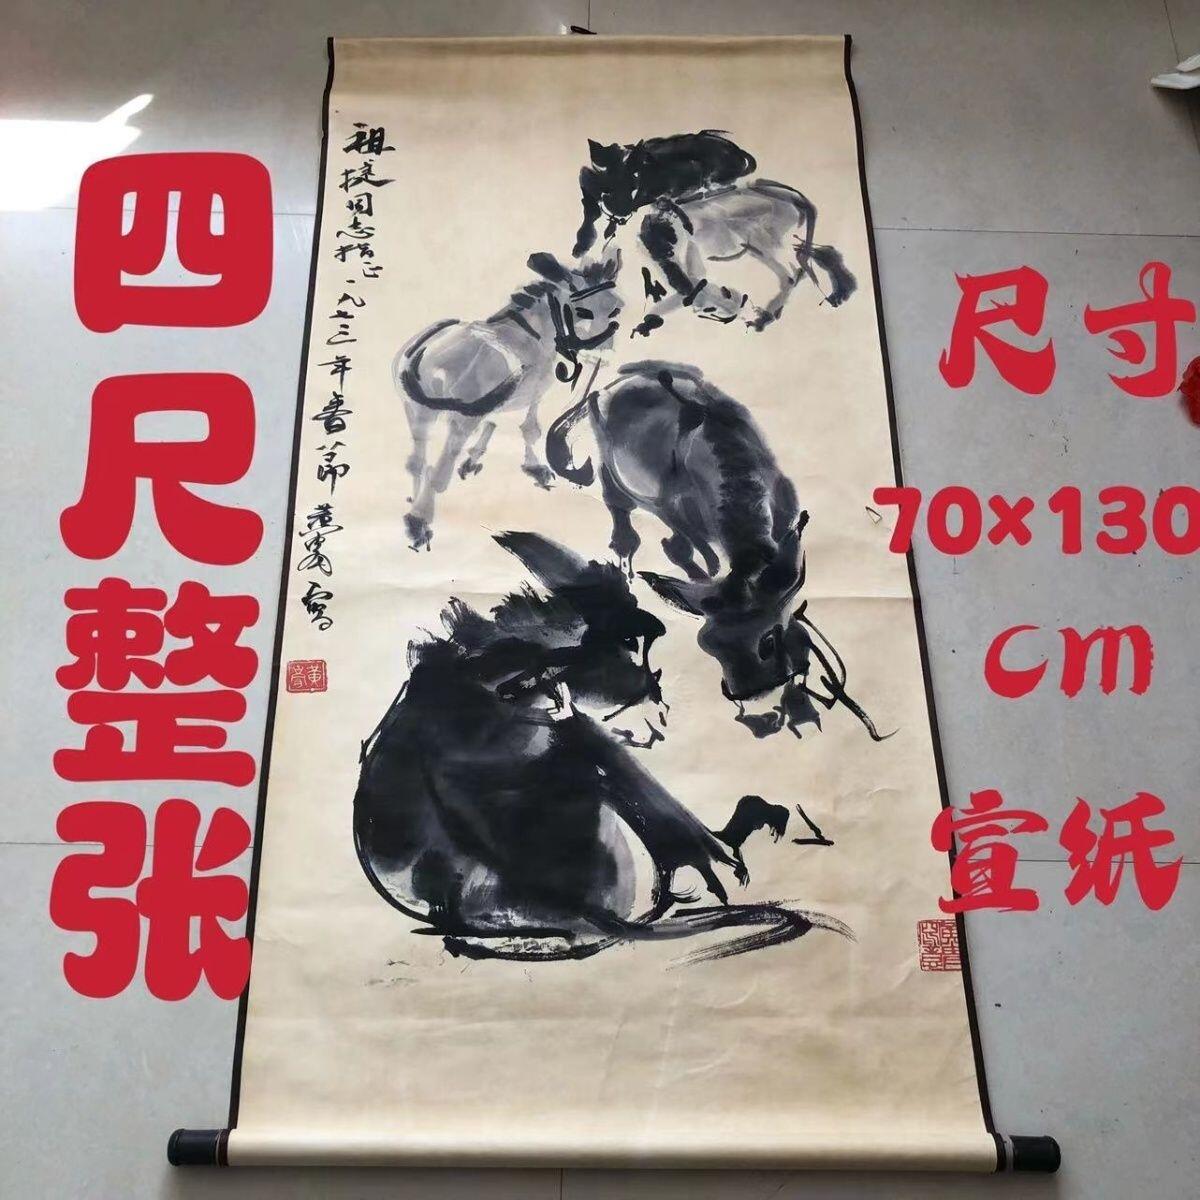 四尺整张
祖捷同志指正一九七三年春节黄胄写
黄胄
尺寸
70×130
cm
宣纸